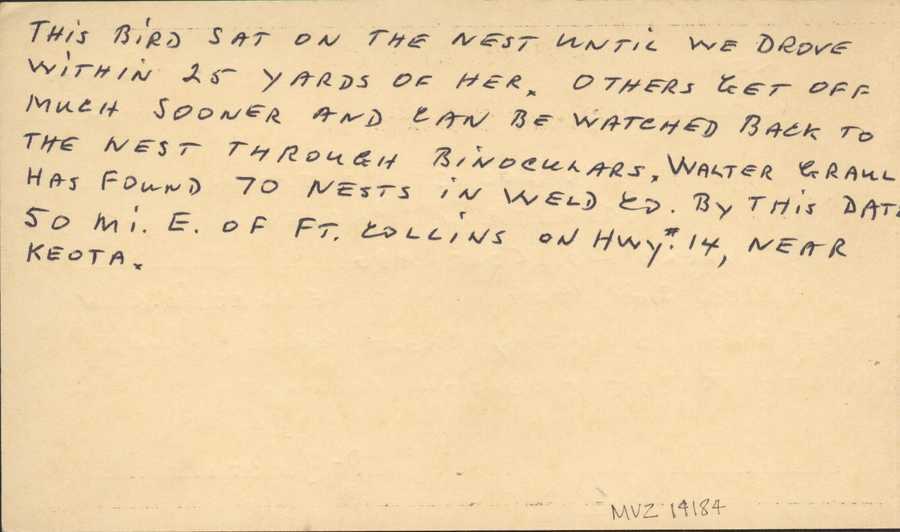 THIS BIRD SAT ON THE NEST UNTIL WE DROVE
WITHIN 25 YARDS OF HER. OTHERS GET OFF
MUCH SOONER AND CAN BE WATCHED BACK TO
THE NEST THROUGH BINOCULARS. WALTER GRAUL
HAS FOUND 70 NESTS IN WELD CO. BY THIS DATE
50 MI. E. OF FT. COLLINS ON HWY #. 14, NEAR
KEOTA.
MVZ 14184